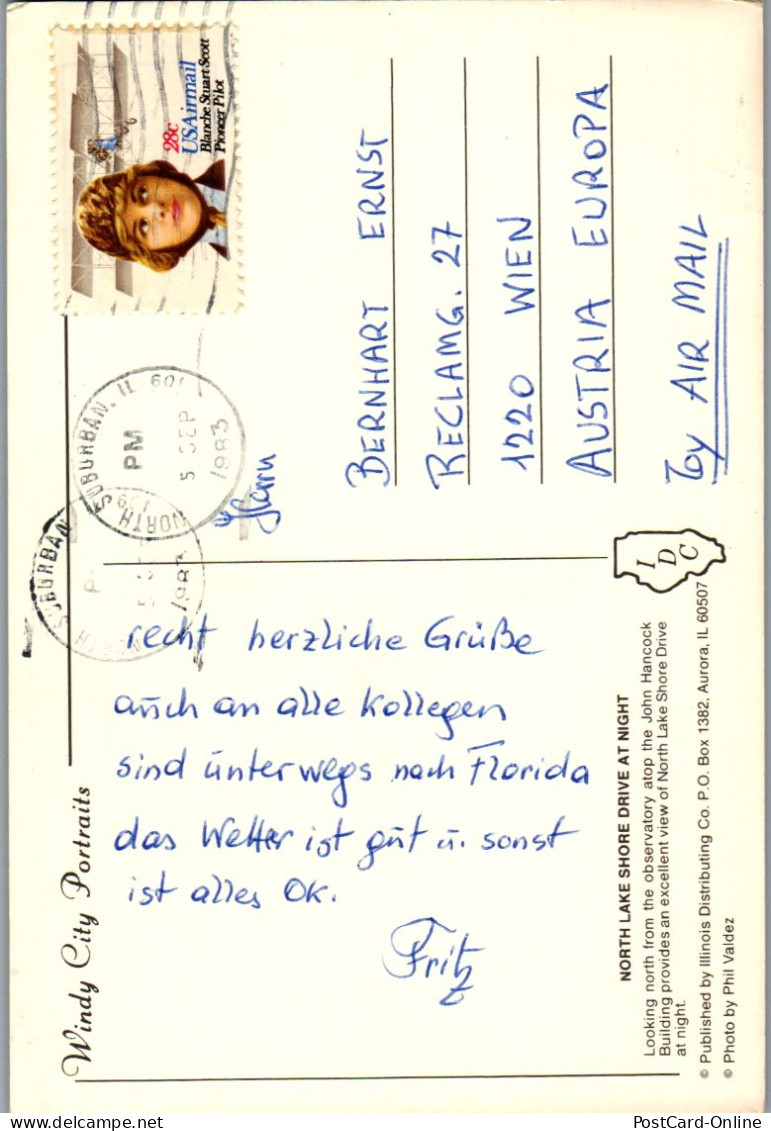 Windy City Portraits
recht herzliche Grüße
auch an alle Kollegen
sind unterwegs nach Florida
das Wetter ist gut u. sonst
ist alles OK.
Fritz
NORTH LAKE SHORE DRIVE AT NIGHT
Looking north from the observatory atop the John Hancock
Building provides an excellent view of North Lake Shore Drive
at night.
© Published by Illinois Distributing Co. P.O. Box 1382, Aurora, IL 60507
© Photo by Phil Valdez
IDC
28c
USAirmail
Blanche Stuart Scott
Pioneer Pilot
NORTH SUBURBAN, IL 601
PM
5 SEP
1983
NORTH SUBURBAN
Herrn
BERNHART ERNST
RECLAMG. 27
1220 WIEN
AUSTRIA EUROPA
by AIR MAIL
PostCard-Online